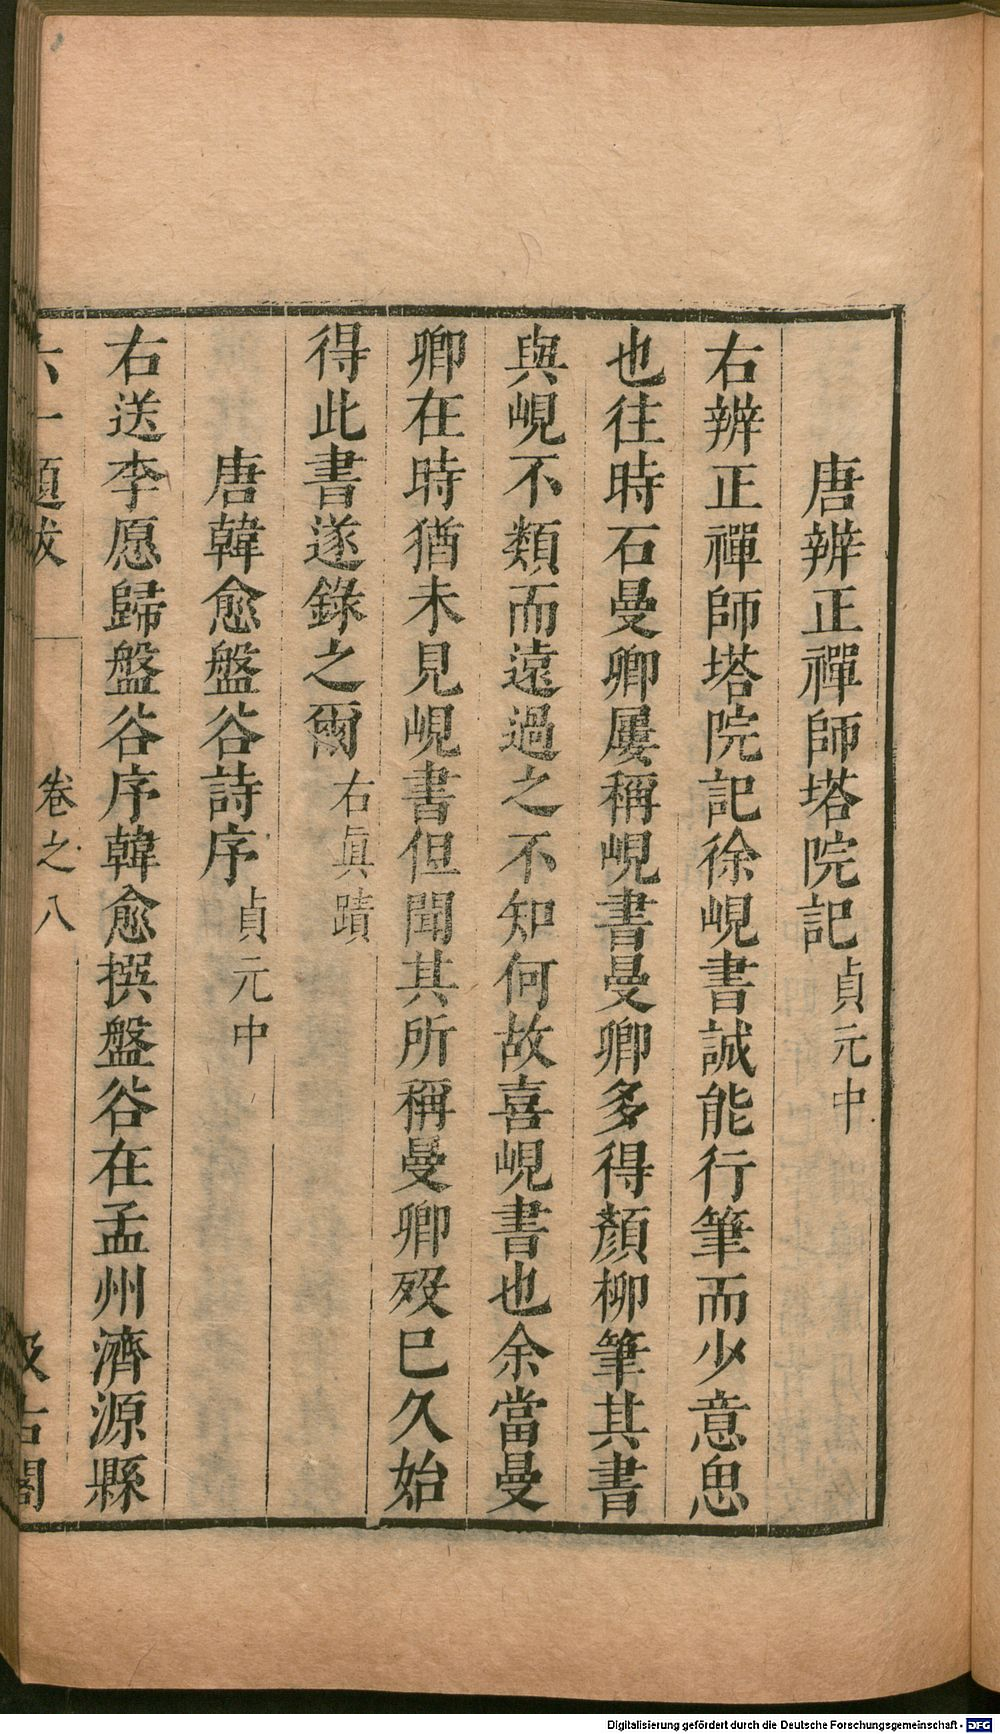 唐辨正禪師塔院記貞元中
右辨正禪師塔院記徐峴書誠能行筆而少意思
也往時石曼卿屢稱峴書曼卿多得顏柳筆其書
與峴不類而遠過之不知何故喜峴書也余當曼
卿在時猶未見峴書但聞其所稱曼卿歿巳久始
得此書遂錄之爾右眞蹟
唐韓愈盤谷詩序貞元中
右送李愿歸盤谷序韓愈撰盤谷在孟州濟源縣
六一題跋 卷之八 汲古閣
Digitalisierung gefördert durch die Deutsche Forschungsgemeinschaft - DFG